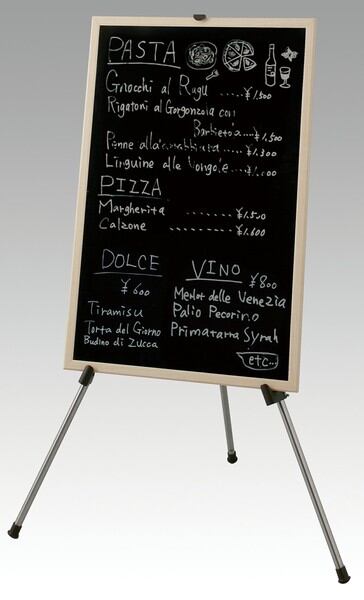 PASTA
Gnocchi al Ragu ..... ¥1.500
Rigatoni al Gorgonzola con
Barbietola.... ¥1.500
Penne alla ..... ¥1.300
Linguine alle Vongole ....
PIZZA
Margherita ........ ¥1.500
Calzone ............ ¥1.600
DOLCE
¥600
Tiramisu
Torta del Giorno
Budino di Zucca
VINO
¥800
Merlot delle Venezia
Palio Pecorino
Syrah
etc...